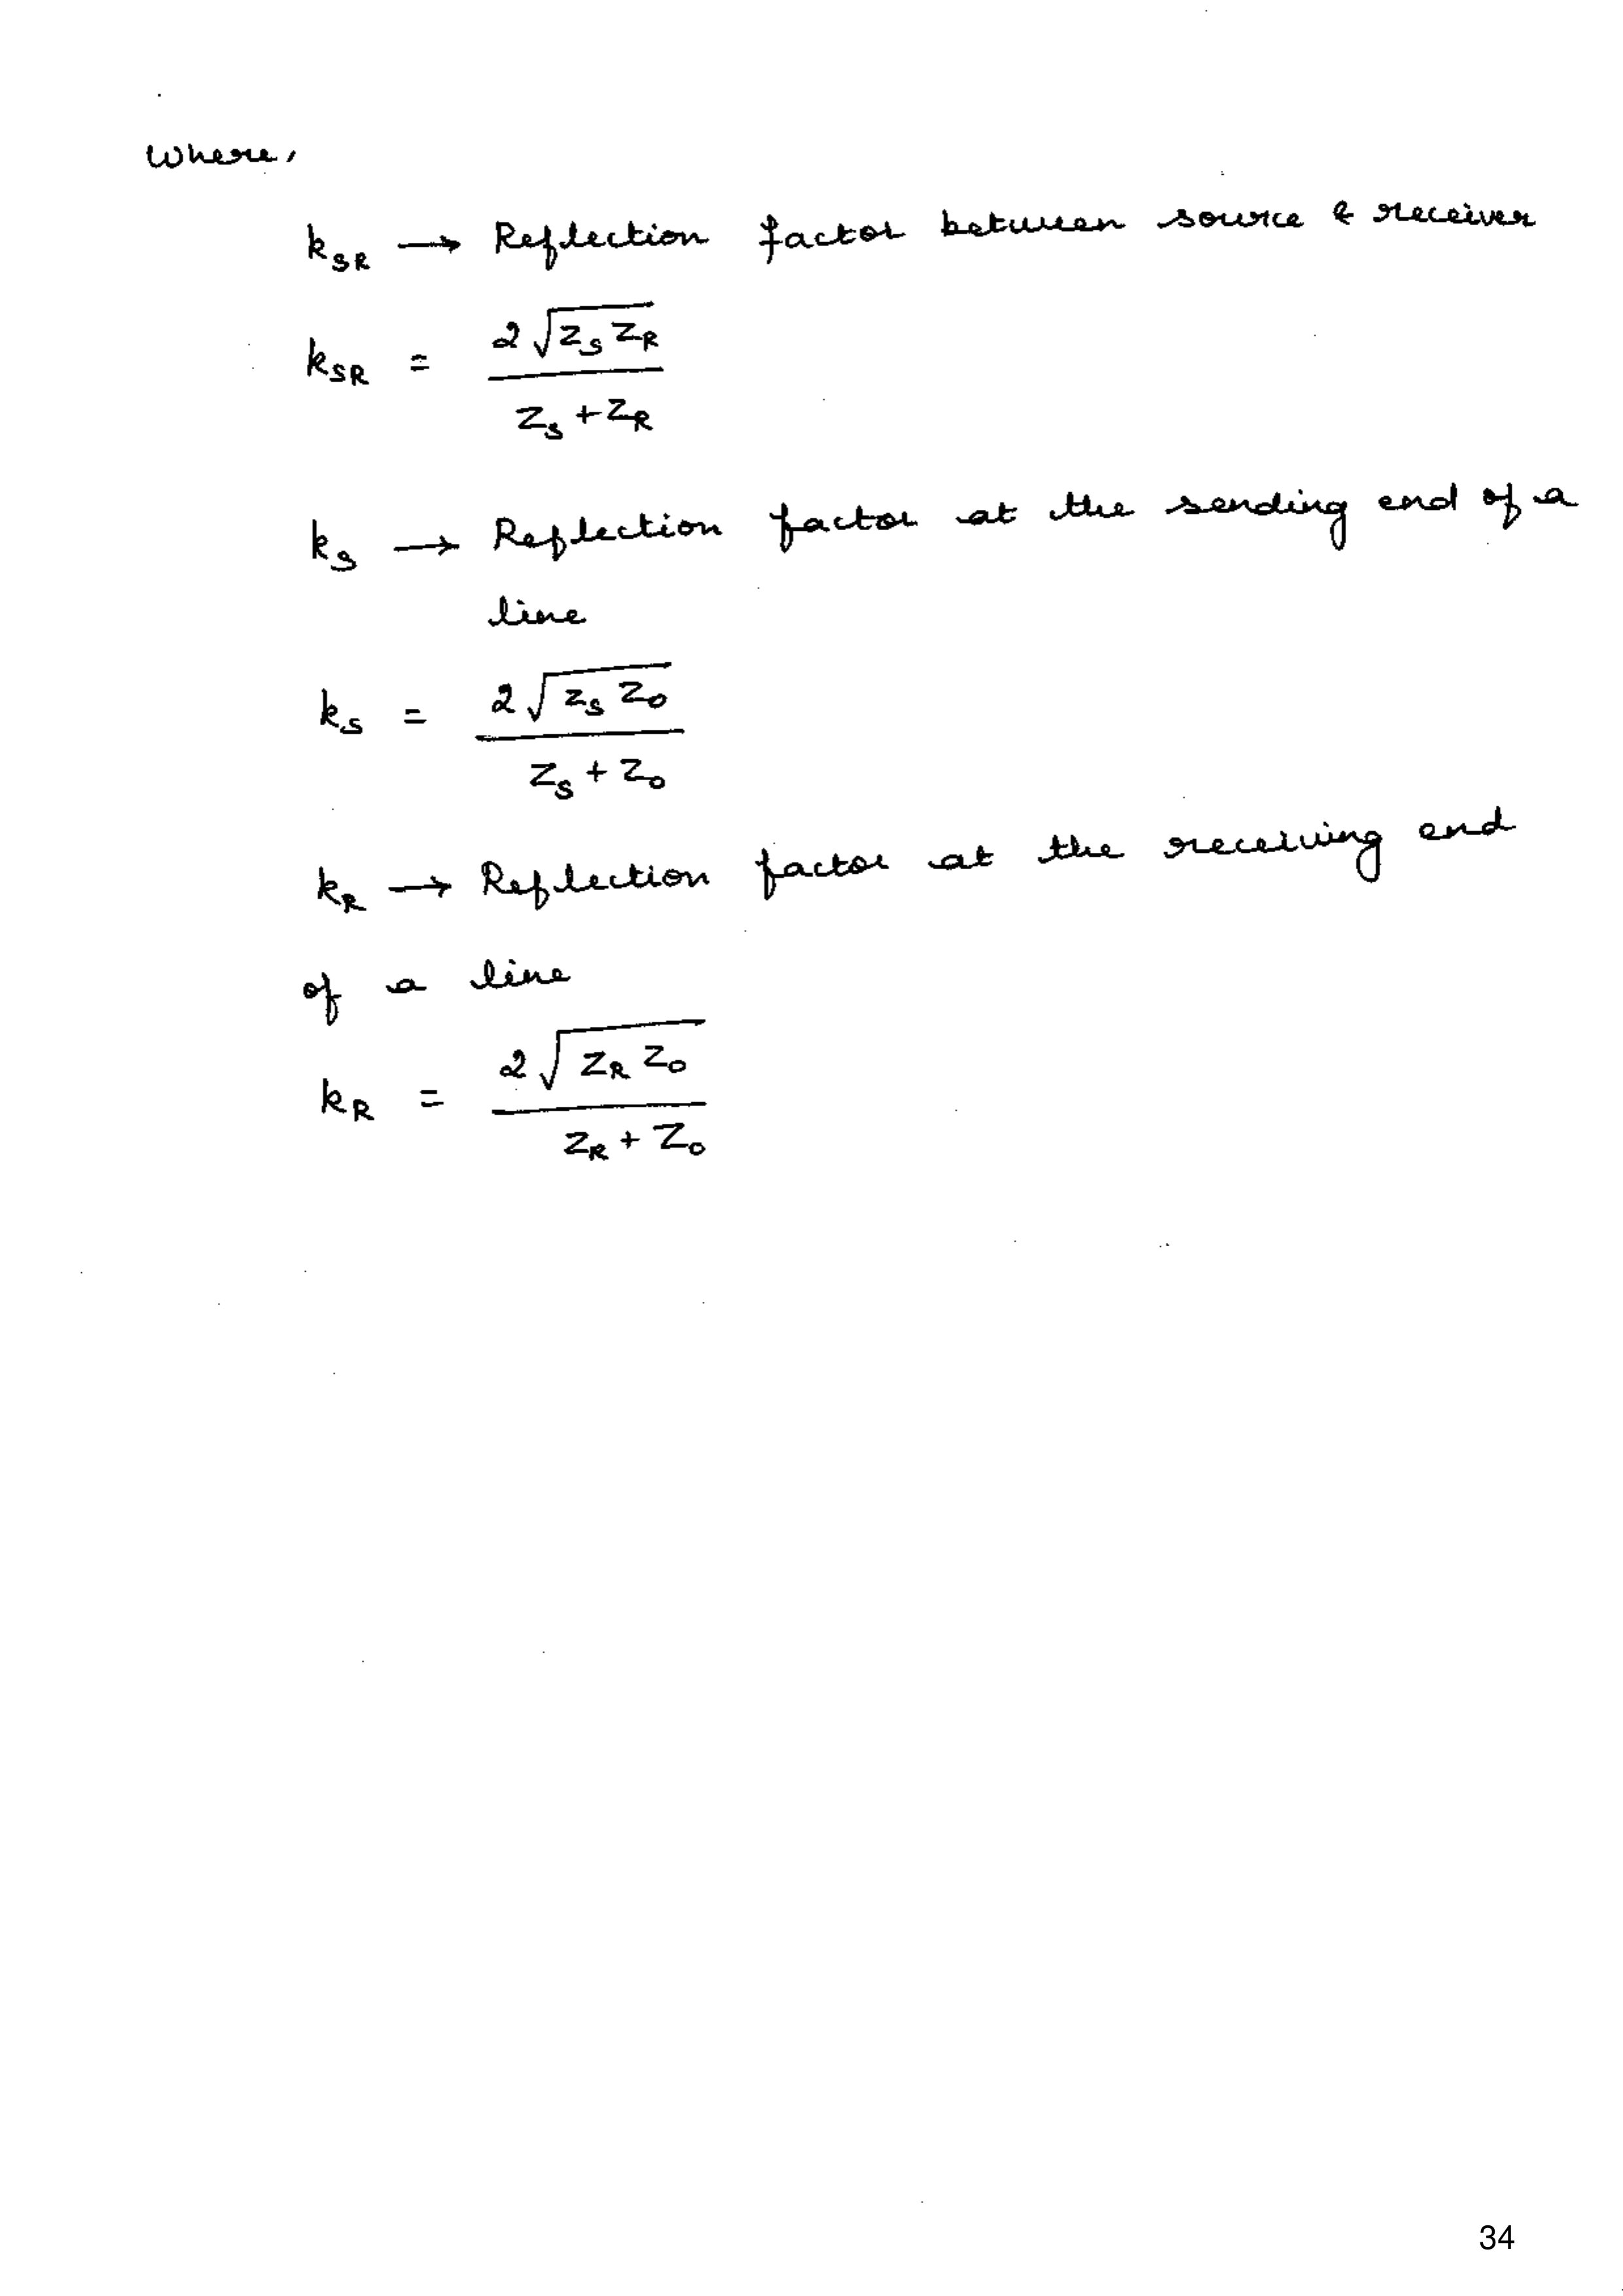 where,
k_SR → Reflection factor between source & receiver
k_SR = 2√(Z_S Z_R) / (Z_S + Z_R)
k_S → Reflection factor at the sending end of a
line
k_S = 2√(Z_S Z_0) / (Z_S + Z_0)
k_R → Reflection factor at the receiving end
of a line
k_R = 2√(Z_R Z_0) / (Z_R + Z_0)
34